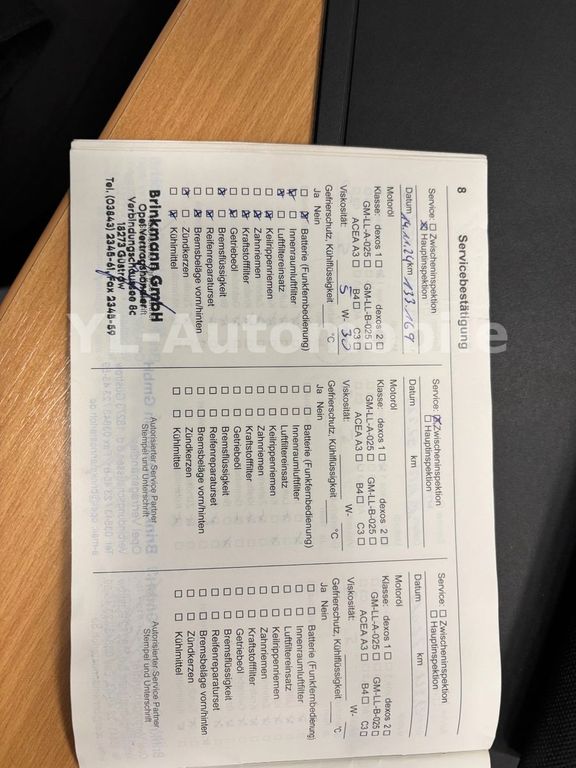 8 Servicebestätigung
Service: ☐ Zwischeninspektion
☒ Hauptinspektion
Datum 14.11.24 km 133 169
Motoröl
Klasse: dexos 1 ☐ dexos 2 ☐
GM-LL-A-025 ☐ GM-LL-B-025 ☐
ACEA A3 ☐ B4 ☐ C3 ☐
Viskosität: 5 W- 30
Gefrierschutz, Kühlflüssigkeit °C
Ja Nein
☐ ☒ Batterie (Funkfernbedienung)
☒ ☐ Innenraumluftfilter
☒ ☐ Luftfiltereinsatz
☐ ☒ Keilrippenriemen
☐ ☒ Zahnriemen
☐ ☒ Kraftstofffilter
☐ ☒ Getriebeöl
☒ ☐ Bremsflüssigkeit
☐ ☒ Reifenreparaturset
☐ ☒ Bremsbeläge vorn/hinten
☒ ☐ Zündkerzen
☐ ☒ Kühlmittel
Brinkmann GmbH
Opel Vertragshändler
Verbindungschaussee 8c
18273 Güstrow
Tel. (03843) 2348-0, Fax 2348-59
Service: ☒ Zwischeninspektion
☐ Hauptinspektion
Datum km
Motoröl
Klasse: dexos 1 ☐ dexos 2 ☐
GM-LL-A-025 ☐ GM-LL-B-025 ☐
ACEA A3 ☐ B4 ☐ C3 ☐
Viskosität: W-
Gefrierschutz, Kühlflüssigkeit °C
Ja Nein
☐ ☐ Batterie (Funkfernbedienung)
☐ ☐ Innenraumluftfilter
☐ ☐ Luftfiltereinsatz
☐ ☐ Keilrippenriemen
☐ ☐ Zahnriemen
☐ ☐ Kraftstofffilter
☐ ☐ Getriebeöl
☐ ☐ Bremsflüssigkeit
☐ ☐ Reifenreparaturset
☐ ☐ Bremsbeläge vorn/hinten
☐ ☐ Zündkerzen
☐ ☐ Kühlmittel
Autorisierter Service Partner
Stempel und Unterschrift
Service: ☐ Zwischeninspektion
☐ Hauptinspektion
Datum km
Motoröl
Klasse: dexos 1 ☐ dexos 2 ☐
GM-LL-A-025 ☐ GM-LL-B-025 ☐
ACEA A3 ☐ B4 ☐ C3 ☐
Viskosität: W-
Gefrierschutz, Kühlflüssigkeit °C
Ja Nein
☐ ☐ Batterie (Funkfernbedienung)
☐ ☐ Innenraumluftfilter
☐ ☐ Luftfiltereinsatz
☐ ☐ Keilrippenriemen
☐ ☐ Zahnriemen
☐ ☐ Kraftstofffilter
☐ ☐ Getriebeöl
☐ ☐ Bremsflüssigkeit
☐ ☐ Reifenreparaturset
☐ ☐ Bremsbeläge vorn/hinten
☐ ☐ Zündkerzen
☐ ☐ Kühlmittel
Autorisierter Service Partner
Stempel und Unterschrift
YL-Automobile